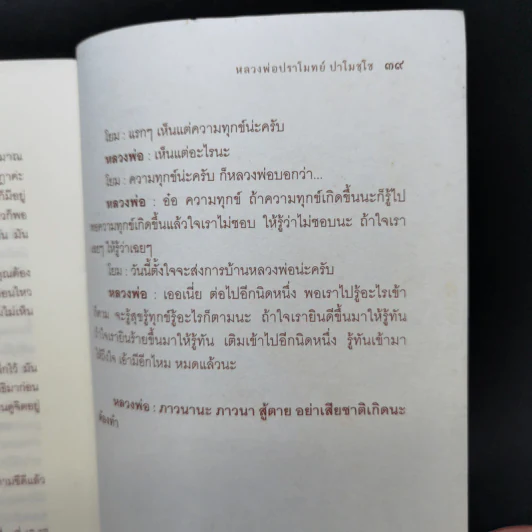 มาณ
ฏาค่ะ
ก็มีอยู่
วก็พอ
น มัน
คุณต้อง
ก่อนไหว
นไม่เห็น
ไว้ มัน
ธีมาก่อน
นดูจิตอยู่
ามซีดีแล้ว
หลวงพ่อปราโมทย์ ปาโมชฺโช ๓๙
โยม : แรกๆ เห็นแต่ความทุกข์น่ะครับ
หลวงพ่อ : เห็นแต่อะไรนะ
โยม : ความทุกข์น่ะครับ ก็หลวงพ่อบอกว่า...
หลวงพ่อ : อ๋อ ความทุกข์ ถ้าความทุกข์เกิดขึ้นนะก็รู้ไป
พอความทุกข์เกิดขึ้นแล้วใจเราไม่ชอบ ให้รู้ว่าไม่ชอบนะ ถ้าใจเรา
เฉยๆ ให้รู้ว่าเฉยๆ
โยม : วันนี้ตั้งใจจะส่งการบ้านหลวงพ่อน่ะครับ
หลวงพ่อ : เออเนี่ย ต่อไปอีกนิดหนึ่ง พอเราไปรู้อะไรเข้า
ก็ตาม จะรู้สุขรู้ทุกข์รู้อะไรก็ตามนะ ถ้าใจเรายินดีขึ้นมาให้รู้ทัน
ถ้าใจเรายินร้ายขึ้นมาให้รู้ทัน เติมเข้าไปอีกนิดหนึ่ง รู้ทันเข้ามา
ให้ถึงใจ เอ้ามีอีกไหม หมดแล้วนะ
หลวงพ่อ : ภาวนานะ ภาวนา สู้ตาย อย่าเสียชาติเกิดนะ
ต้องทำ